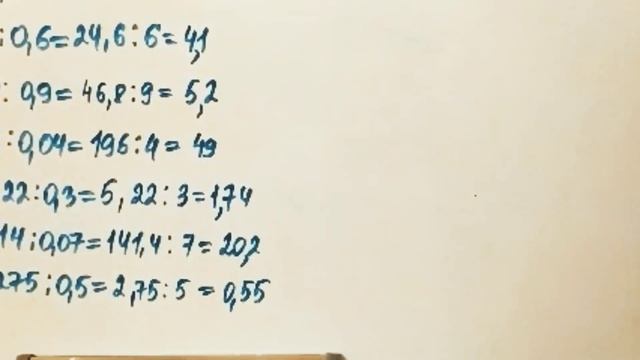 : 0,6 = 24,6 : 6 = 4,1
: 0,9 = 46,8 : 9 = 5,2
: 0,04 = 196 : 4 = 49
22 : 0,3 = 5,22 : 3 = 1,74
14 : 0,07 = 141,4 : 7 = 20,2
275 : 0,5 = 2,75 : 5 = 0,55